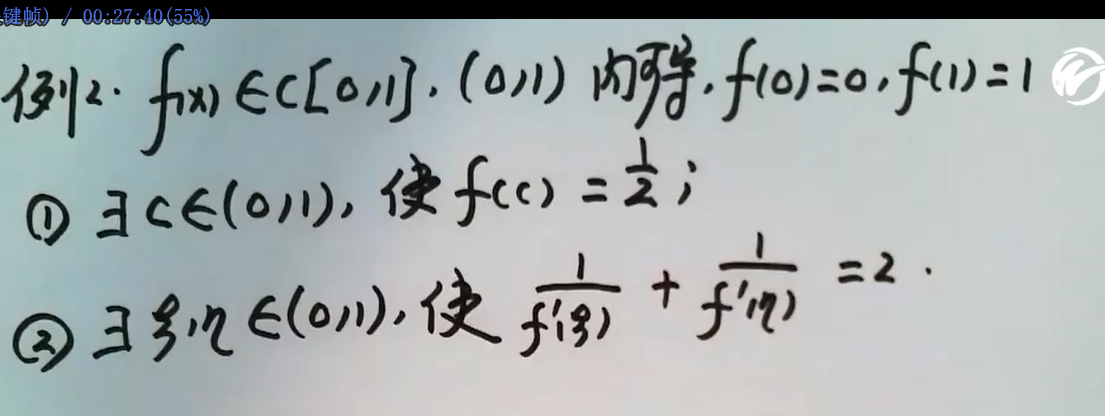 键帧) / 00:27:40(55%)
例2. f(x)∈C[0,1]. (0,1) 内可导. f(0)=0, f(1)=1
① ∃ c∈(0,1), 使 f(c) = 1/2 ;
② ∃ ξ,η ∈(0,1), 使 1/f'(ξ) + 1/f'(η) = 2 .